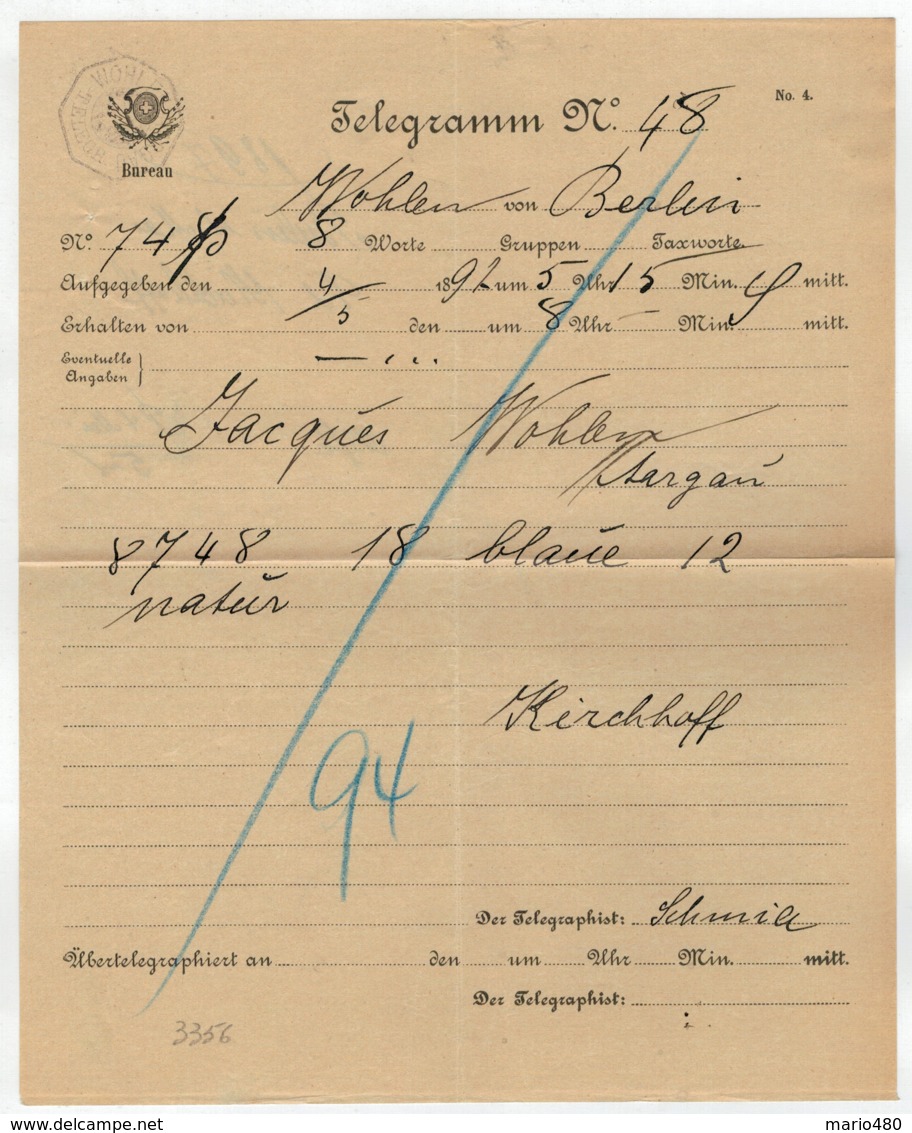 WOHLEN
Telegramm No. 48
No. 4.
Bureau
Wohlen von Berlin
No. 74 8 Worte Gruppen Taxworte
Aufgegeben den 4/5 1892 um 5 Uhr 15 Min. mitt.
Erhalten von den um 8 Uhr – Min. mitt.
Eventuelle
Angaben } — ...
Jacques Wohlen
Aargau
8748 18 blaue 12
natur
Kirchhoff
94
Der Telegraphist: Schmid
Übertelegraphiert an den um Uhr Min. mitt.
Der Telegraphist:
3356
mario480